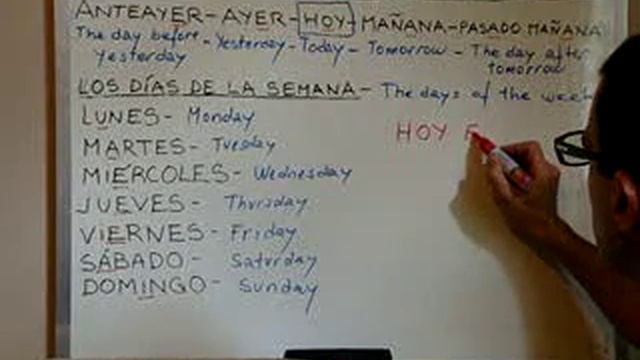 ANTEAYER - AYER - HOY - MAÑANA - PASADO MAÑANA
The day before - Yesterday - Today - Tomorrow - The day after
yesterday tomorrow
LOS DÍAS DE LA SEMANA - The days of the week
LUNES - Monday
HOY E
MARTES - Tuesday
MIÉRCOLES - Wednesday
JUEVES - Thursday
VIERNES - Friday
SÁBADO - Saturday
DOMINGO - Sunday